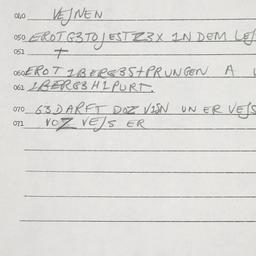 040 VEJNEN
050 EROTG3TOJESTZ3X 1N DEM LEJ
051 +
060 EROT 1BERG3S+PRUNGEN A
061 1BERG3H1PURT.
070 63DARFT DOZ V1SN UN ER VEJS
071 VOZ VEJS ER